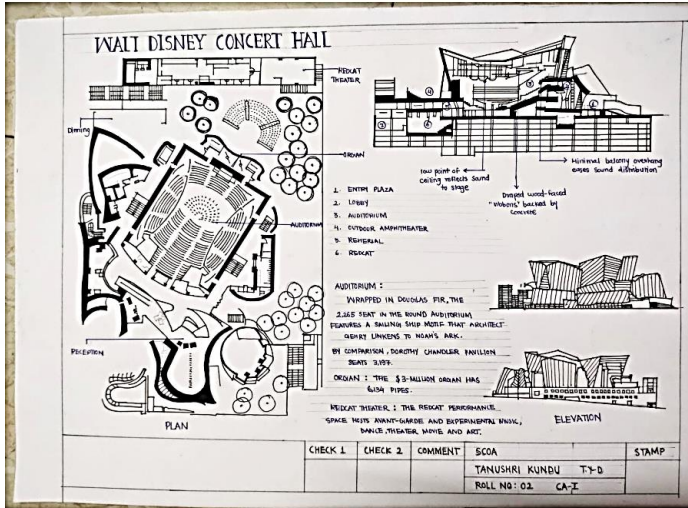 WALT DISNEY CONCERT HALL
REDCAT
THEATER
Dining
ORGIAN
AUDITORIUM
RECEPTION
PLAN
low point of
ceiling reflects sound
to stage
Draped wood-faced
"ribbons" backed by
concrete
Minimal balcony overhang
eases sound distribution
1. ENTRY PLAZA
2. LOBBY
3. AUDITORIUM
4. OUTDOOR AMPHITHEATER
5. REHERIAL
6. REDCAT
AUDITORIUM :
WRAPPED IN DOUGLAS FIR, THE
2,265 SEAT IN THE ROUND AUDITORIUM
FEATURES A SAILING SHIP MOTIF THAT ARCHITECT
GEHRY LINKENS TO NOAH'S ARK.
BY COMPARISON, DOROTHY CHANDLER PAVILION
SEATS 3,197.
ORGIAN : THE $3-MILLION ORGIAN HAS
6,134 PIPES.
REDCAT THEATER : THE REDCAT PERFORMANCE
SPACE HOSTS AVANT-GARDE AND EXPERIMENTAL MUSIC,
DANCE, THEATER MOVIE AND ART.
ELEVATION
CHECK 1 CHECK 2 COMMENT SCOA STAMP
TANUSHRI KUNDU T.Y-D
ROLL NO: 02 CA-I